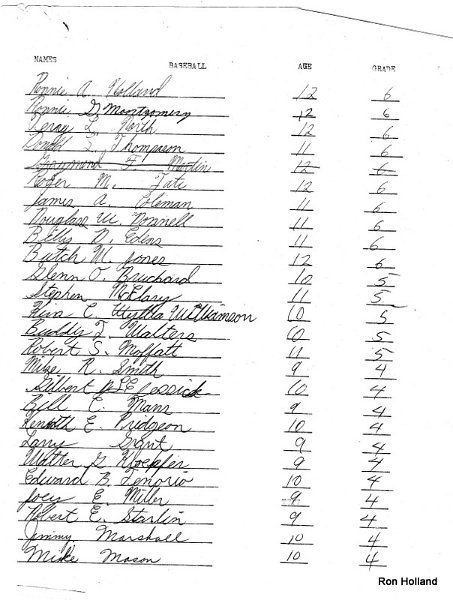 NAMES BASEBALL AGE GRADE
Ronnie A. Holland 12 6
Ronnie G. Montgomery 12 6
Leroy L. North 12 6
Ronald L. Thompason 11 6
Raymond F. Martin 12 6
Roger M. Tate 12 6
James A. Coleman 11 6
Douglass W. Nonnell 11 6
Billy N. Edens 11 6
Butch M. Jones 12 6
Glenn O. Bruchard 10 5
Stephen McClary 11 5
C. Williamson 10 5
Buddy T. Walters 10 5
Robert S. Moffatt 11 5
Mike R. Smith 9 4
Gilbert 10 4
Bill C. Mans 9 4
Kenneth E. Pridgeon 10 4
Larry Grant 9 4
Walter G. Kloepfer 9 4
Edward B. Tenorio 10 4
Joey E. Miller 9 4
Robert E. Starlin 9 4
Jimmy Marshall 10 4
Mike Mason 10 4
Ron Holland